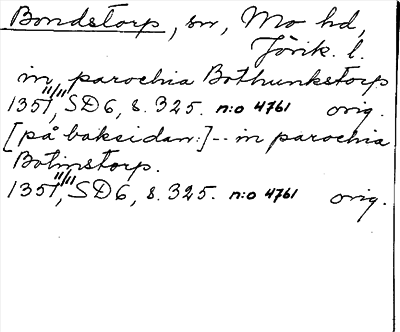 Bondstorp, sn, Mo hd,
Jönk. l.
in parochia Bothunkstorp
11/11
1351, SD 6, s. 325. n:o 4761 orig.
[på baksidan:] -- in parochia
Botinstorp.
11/11
1351, SD 6, s. 325. n:o 4761 orig.